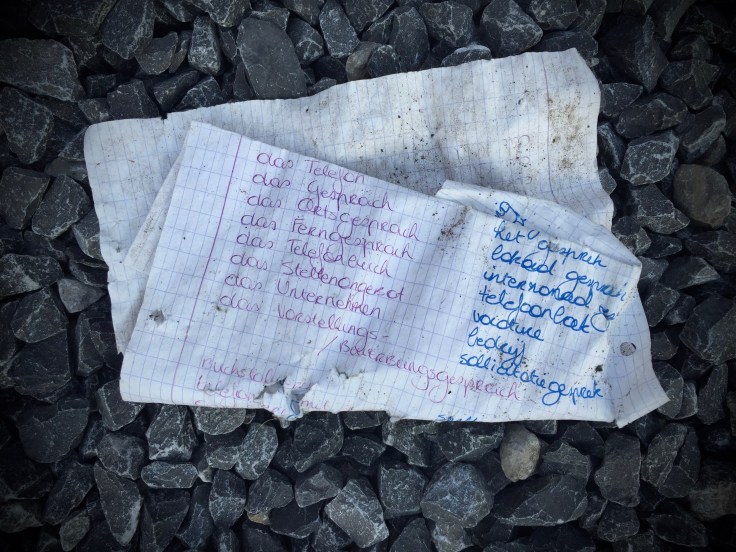 das Telefon
das Gespräch
das Ortsgespräch
das Ferngespräch
das Telefonbuch
das Stellenangebot
das Unternehmen
das Vorstellungs-
/Bewerbungsgespräch
het gesprek
lokaal gesprek
telefoonboek
vacature
bedrijf
sollicitatiegesprek